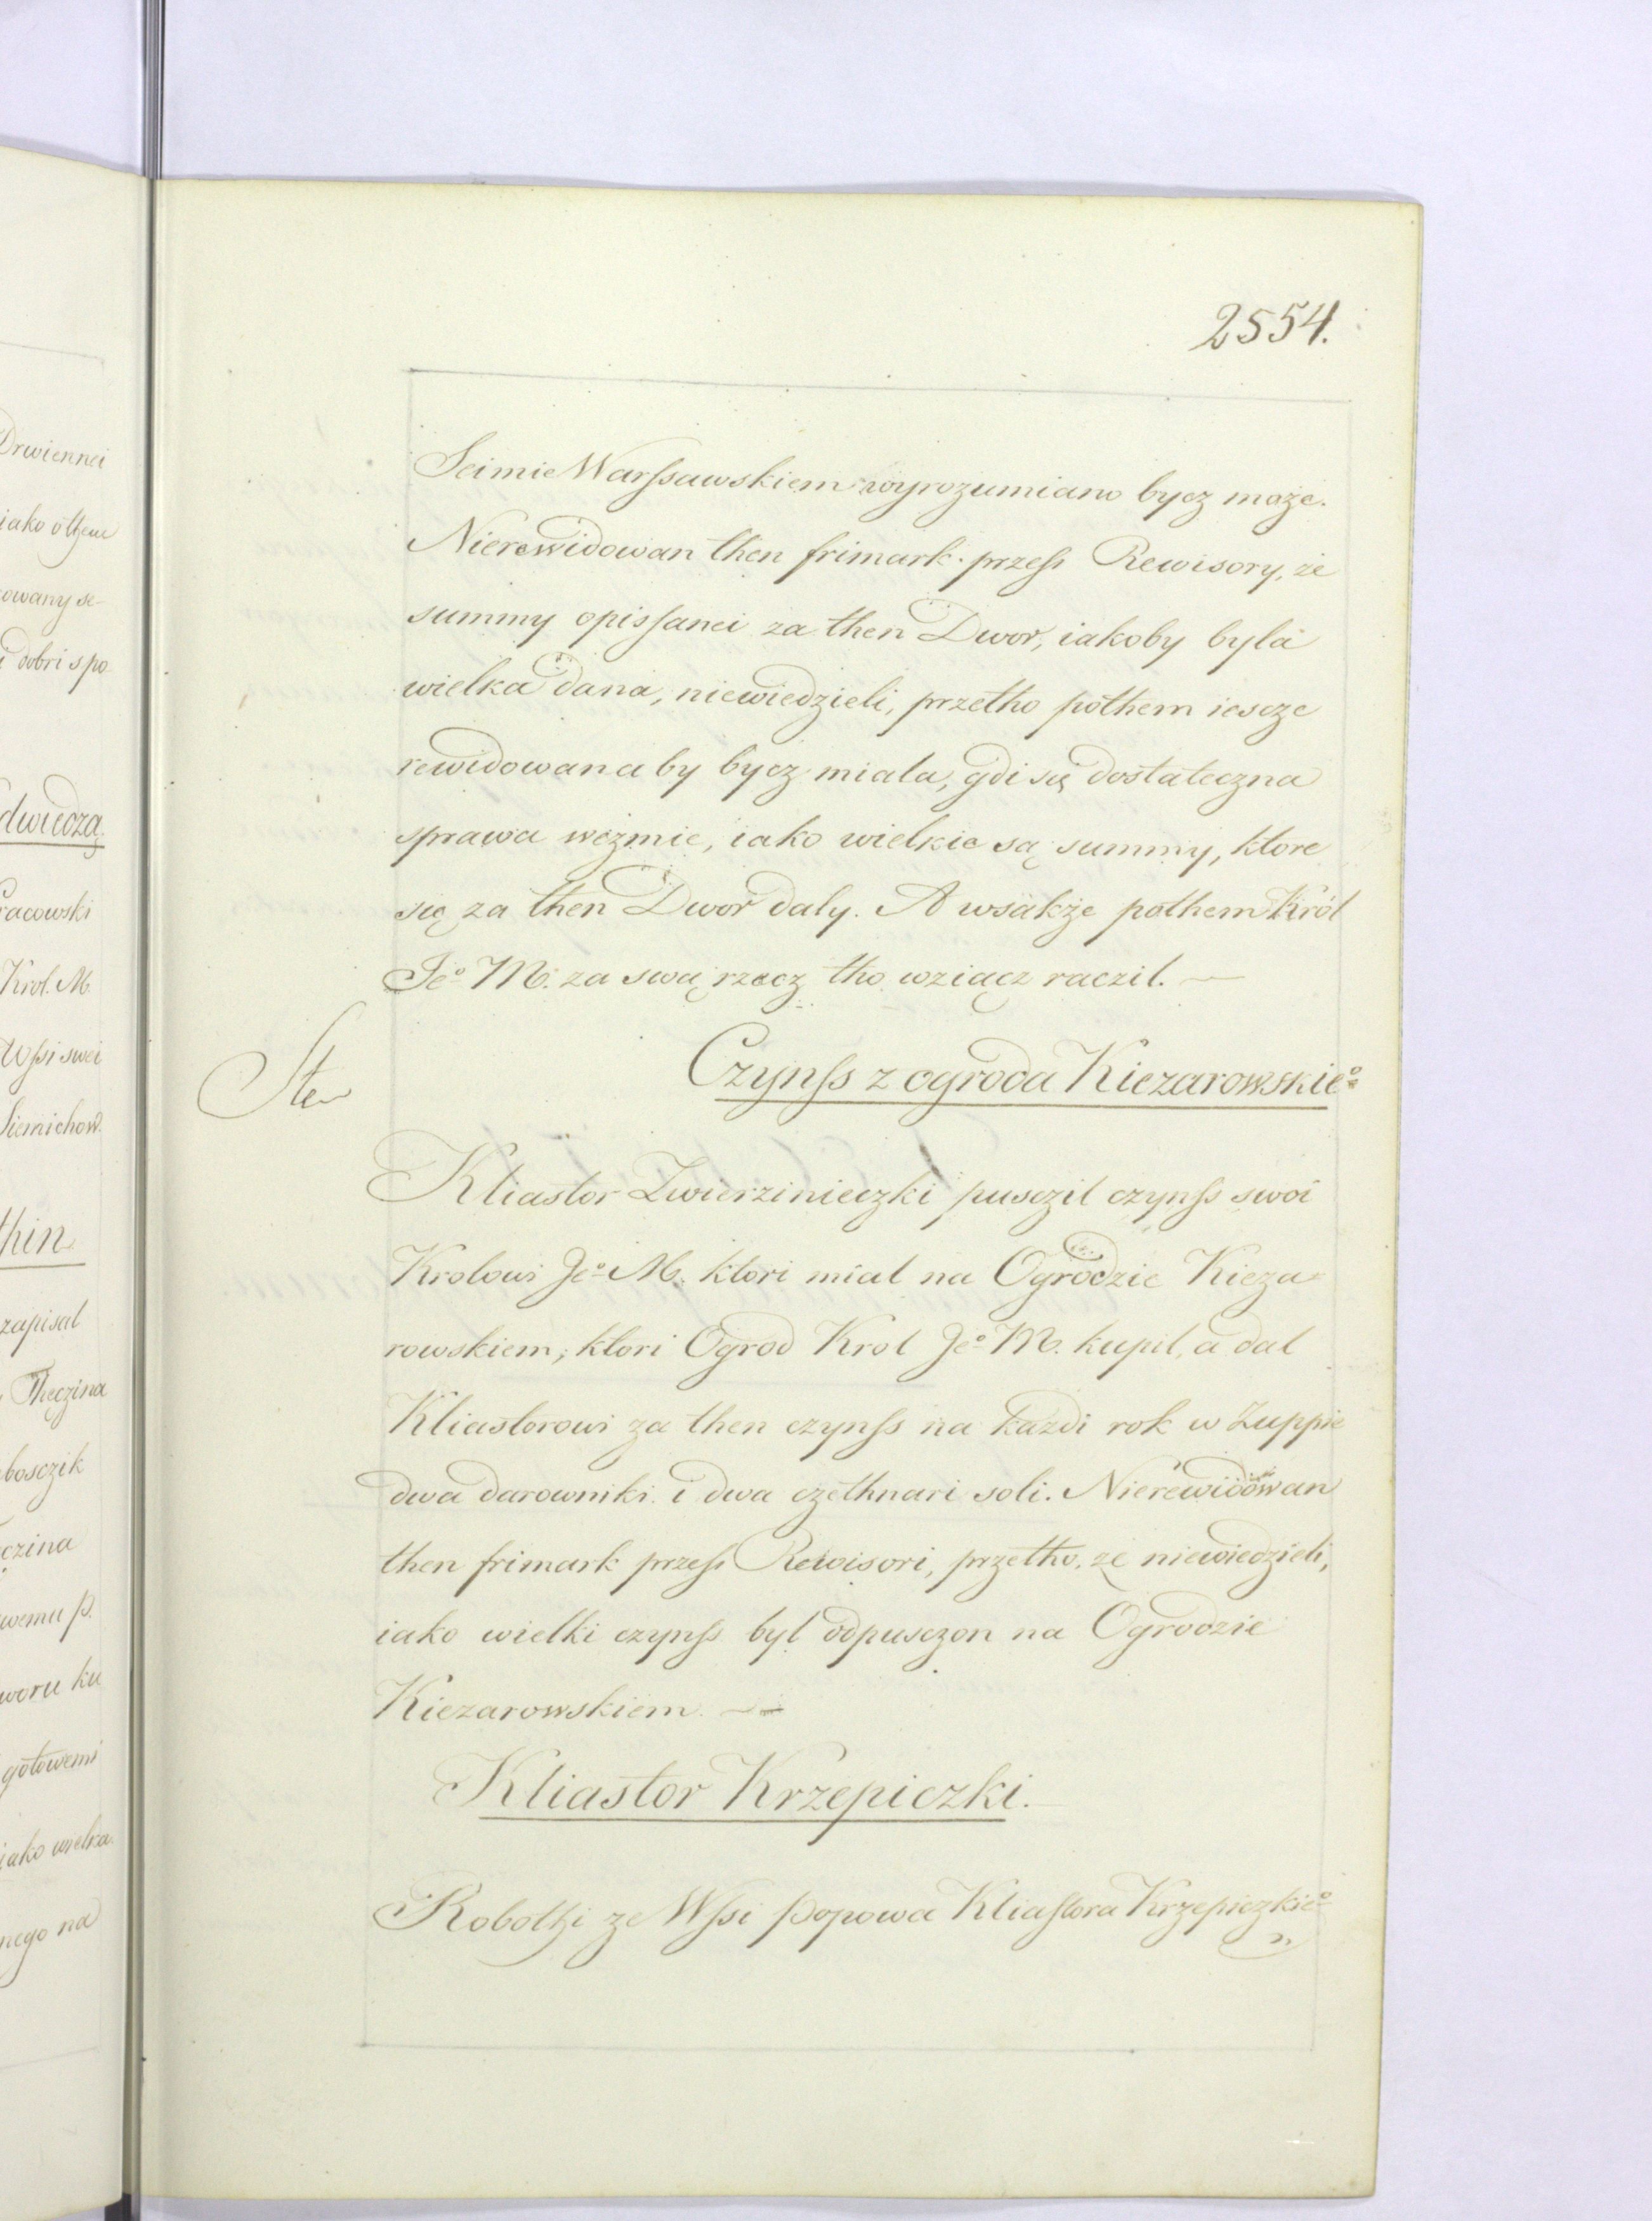 Drwiennei
iako othem
owany se-
dobri spo
dwiedzą.
racowski
Krol. M.
Wssi swei
Siemichow.
thin
zapisal
Theczina
bosczik
czina
wemu p.
woru ku
gotowemi
iako wielka
nego na
2554.
Seimie Warssawskiem wyrozumiano bycz może.
Nierewidowan then frimark przess Rewisory, że
summy opissanei za then Dwor, iakoby byla
wielka dana, niewiedzieli, przetho pothem iescze
rewidowana by bycz miala, gdi się dostateczna
sprawa weźmie, iako wielkie są summy, ktore
się za then Dwor daly. A wsakże pothem Król
Jeº M. za swą rzecz tho wziącz raczil. —
Czynss z ogroda Kiezarowskieº
Kliastor Zwierzinieczki pusczil czynss swoi
Krolowi Jeº M. ktori mial na Ogrodzie Kieza-
rowskiem, ktori Ogrod Krol Jeº M. kupil, a dal
Kliastorowi za then czynss na każdi rok w Żuppie
dwa darowniki i dwa czethnari soli. Nierewidowan
then frimark przess Rewisori, przetho, że niewiedzieli,
iako wielki czynss byl odpusczon na Ogrodzie
Kiezarowskiem. —
Kliastor Krzepiczki.
Robothi ze Wssi Popowa Kliastora Krzepiczkieº